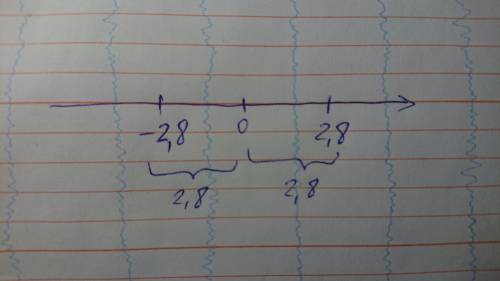 -2,8 0 2,8
2,8 2,8